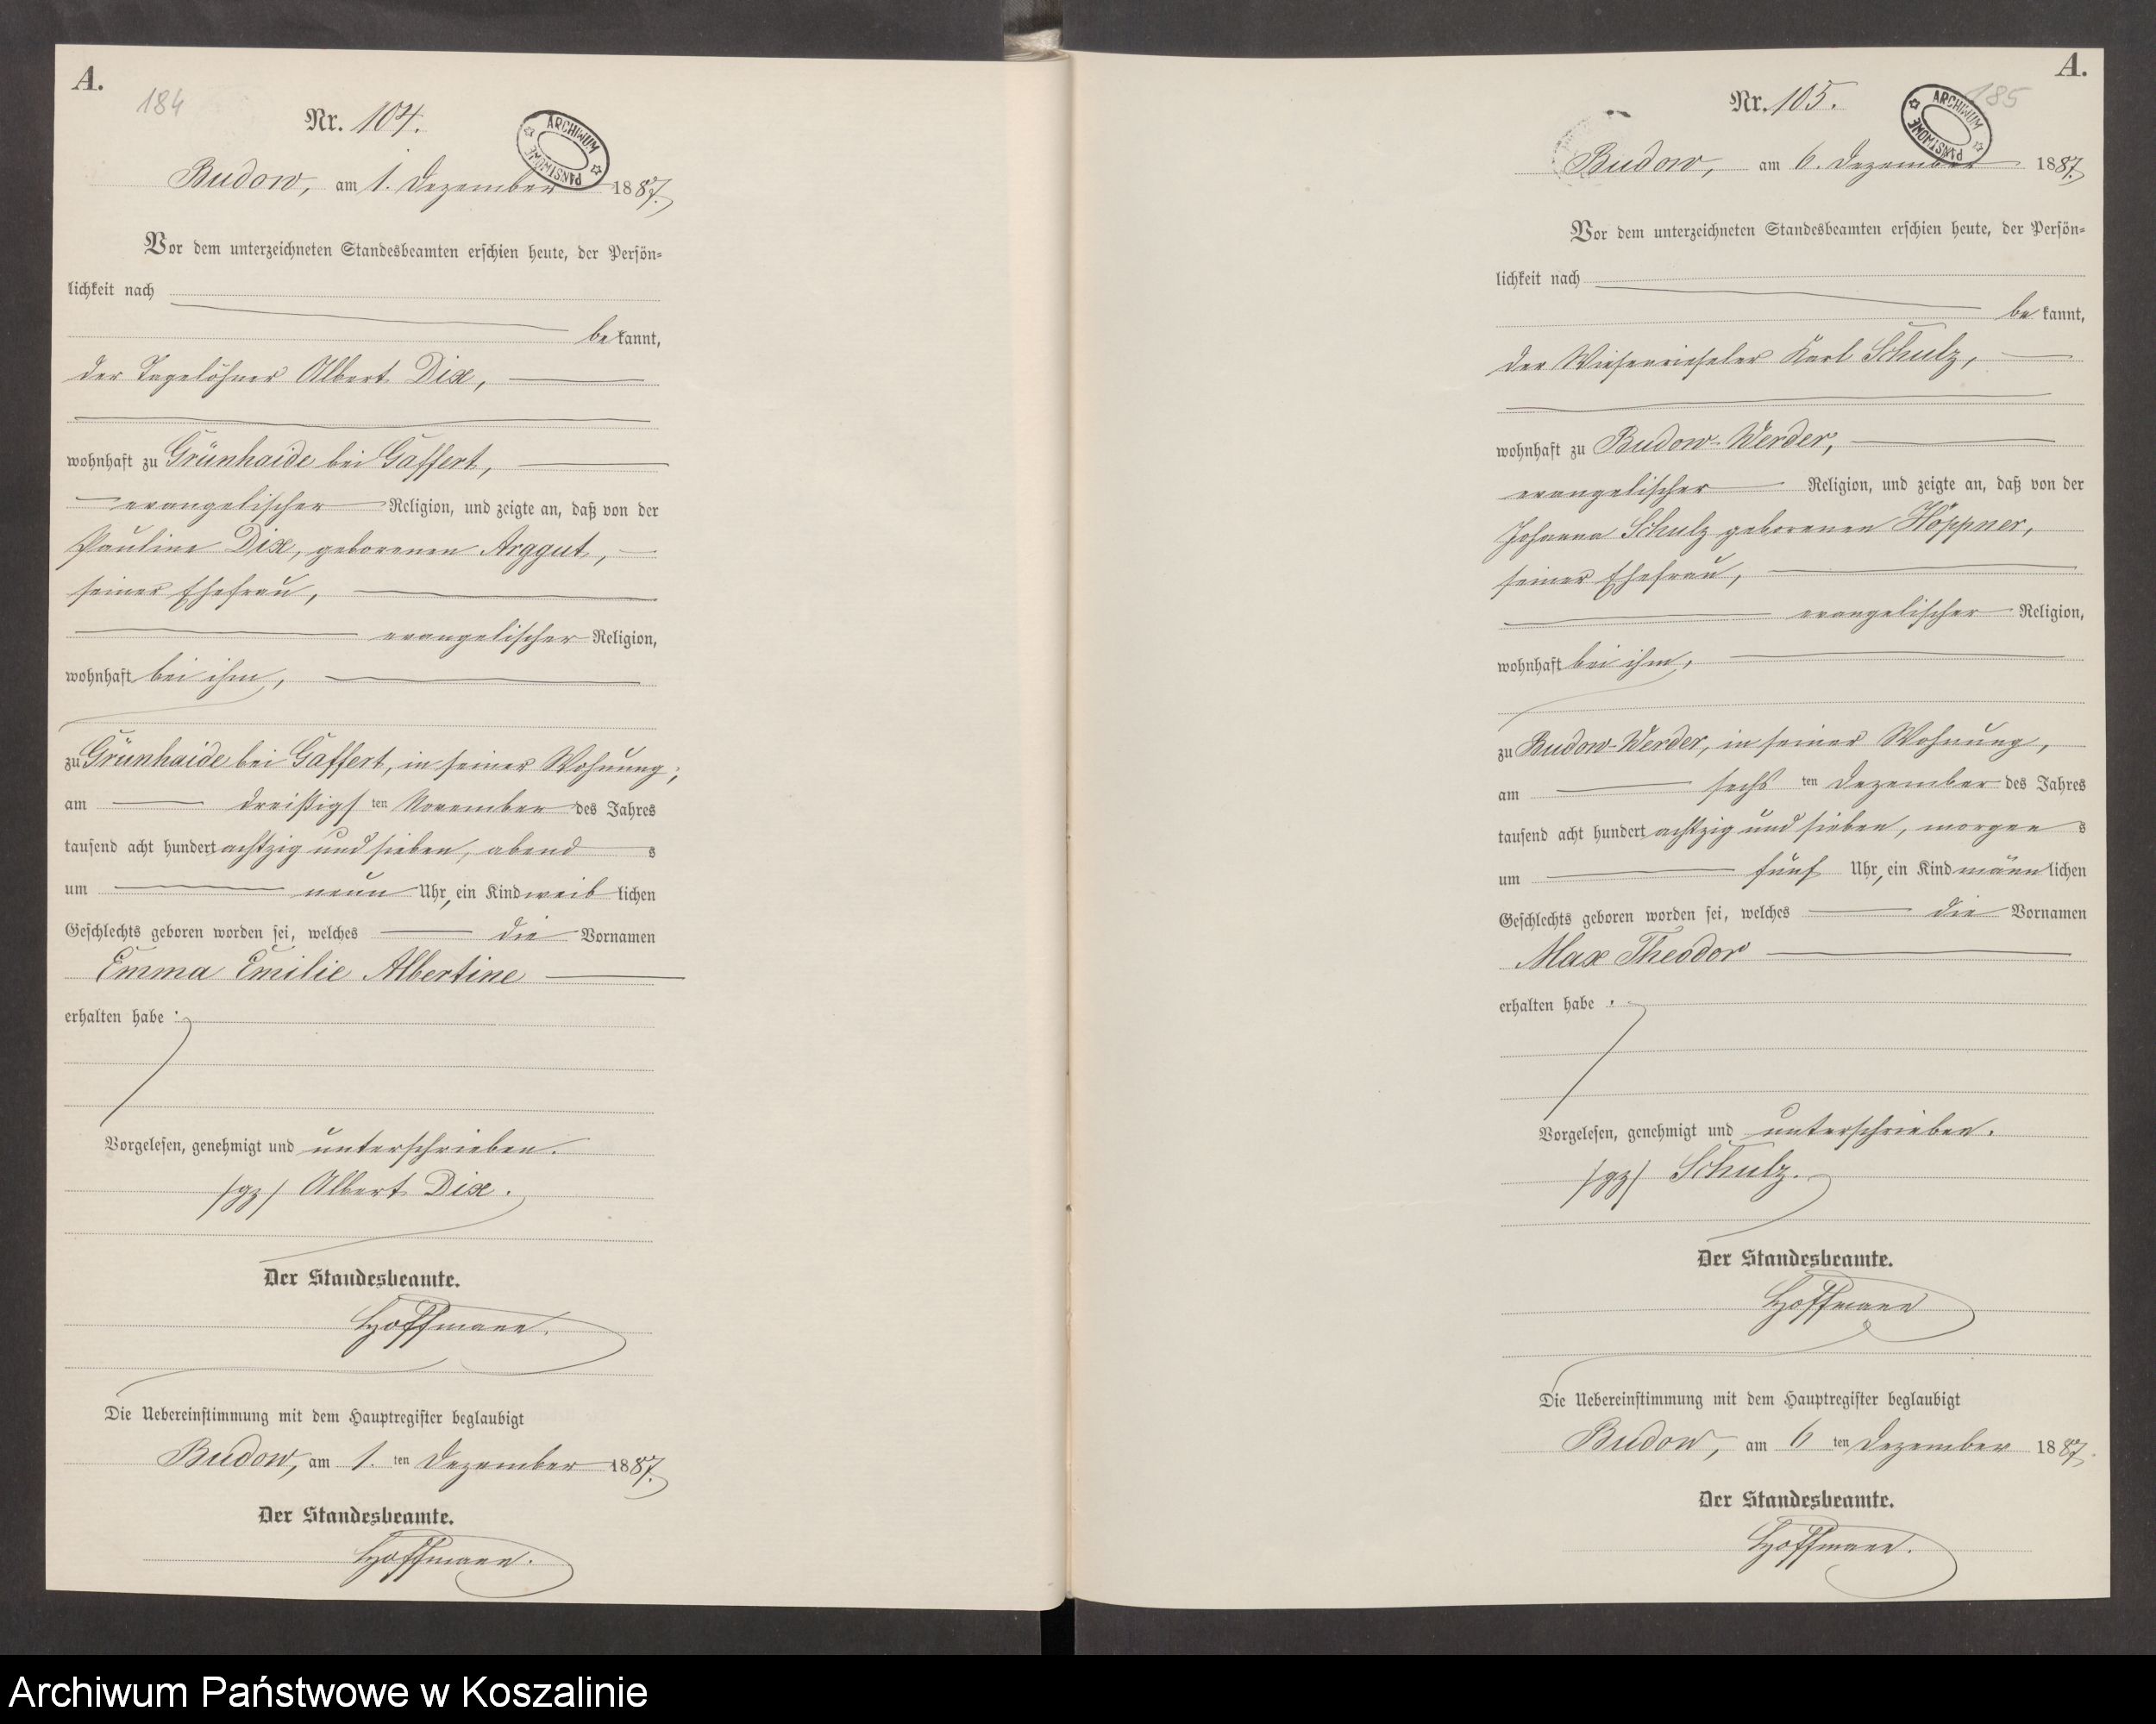 A.
184
Nr. 104.
ARCHIWUM PAŃSTWOWE
Budow, am 1. Dezember 1887.
Vor dem unterzeichneten Standesbeamten erschien heute, der Persön-
lichkeit nach
bekannt,
der Tagelöhner Albert Dix,
wohnhaft zu Grünhaide bei Gaffert,
evangelischer Religion, und zeigte an, daß von der
Pauline Dix, geborenen Arggut,
seiner Ehefrau,
evangelischer Religion,
wohnhaft bei ihm,
zu Grünhaide bei Gaffert, in seiner Wohnung,
am dreißigsten November des Jahres
tausend acht hundert achtzig und sieben, abends
um neun Uhr, ein Kind weiblichen
Geschlechts geboren worden sei, welches die Vornamen
Emma Emilie Albertine
erhalten habe.
Vorgelesen, genehmigt und unterschrieben.
/gz/ Albert Dix.
Der Standesbeamte.
Hoffmann.
Die Uebereinstimmung mit dem Hauptregister beglaubigt
Budow, am 1. ten Dezember 1887.
Der Standesbeamte.
Hoffmann.
A.
185
Nr. 105.
ARCHIWUM PAŃSTWOWE
Budow, am 6. Dezember 1887.
Vor dem unterzeichneten Standesbeamten erschien heute, der Persön-
lichkeit nach
bekannt,
der Wiesenrieseler Karl Schulz,
wohnhaft zu Budow-Werder,
evangelischer Religion, und zeigte an, daß von der
Johanna Schulz geborenen Höppner,
seiner Ehefrau,
evangelischer Religion,
wohnhaft bei ihm,
zu Budow-Werder, in seiner Wohnung,
am sechsten Dezember des Jahres
tausend acht hundert achtzig und sieben, morgens
um fünf Uhr, ein Kind männlichen
Geschlechts geboren worden sei, welches die Vornamen
Max Theodor
erhalten habe.
Vorgelesen, genehmigt und unterschrieben.
/gz/ Schulz.
Der Standesbeamte.
Hoffmann
Die Uebereinstimmung mit dem Hauptregister beglaubigt
Budow, am 6 ten Dezember 1887.
Der Standesbeamte.
Hoffmann.
Archiwum Państwowe w Koszalinie